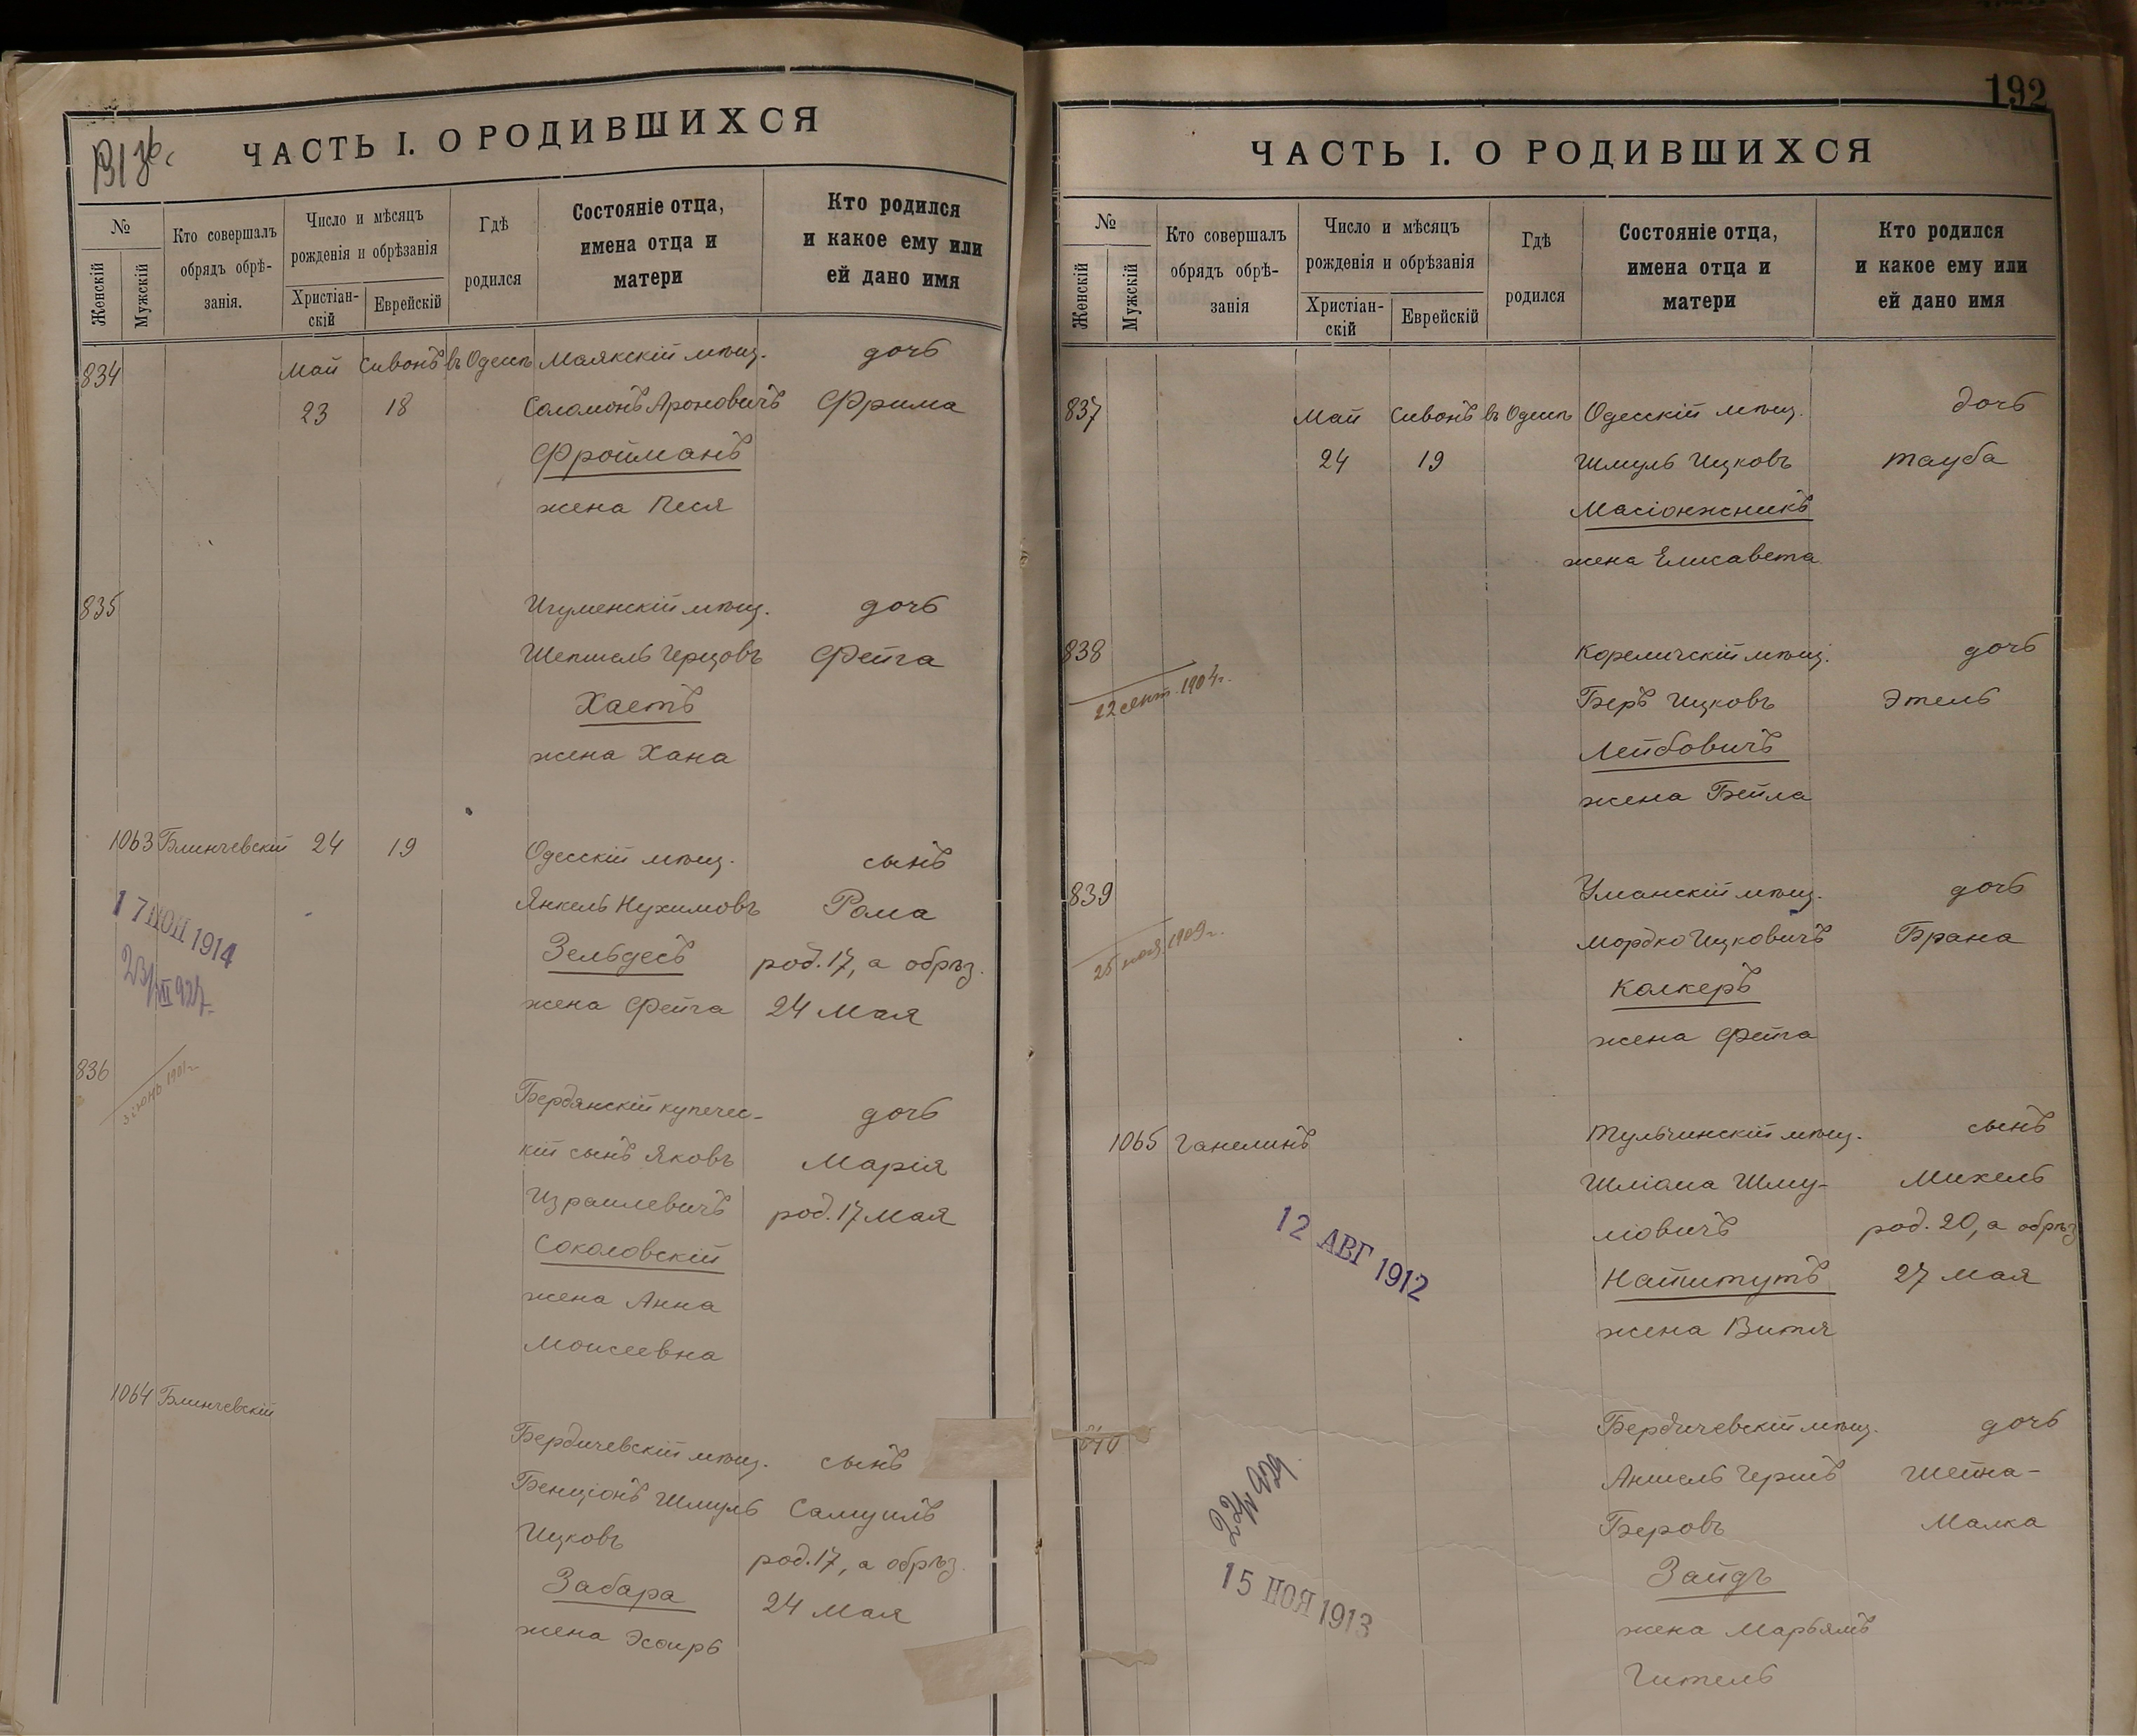 ЧАСТЬ I. О РОДИВШИХСЯ
№
Женскій
Мужской
Кто совершалъ
обрядъ обрѣ-
занія.
Число и мѣсяцъ
рожденія и обрѣзанія
Христіан-
скій
Еврейскій
Гдѣ
родился
Состояніе отца,
имена отца и
матери
Кто родился
и какое ему или
ей дано имя
834 Май Сивонъ въ Одессѣ Маякскій мѣщ. дочь
23 18 Соломонъ Ароновичъ Фрима
Фройманъ
жена Песя
835 Игуменскій мѣщ. дочь
Шепшель Герцовъ Фейга
Хаетъ
жена Хана
1063 Блинчевскій 24 19 Одесскій мѣщ. сынъ
Янкель Нухимовъ Рома
Зельдесъ род. 17, а обрѣз.
жена Фейга 24 Мая
17 ІЮН 1914
836 Бердянскій купечес-
дочь
кій сынъ Яковъ Марія
Израилевичъ род. 17 Мая
Соколовскій
жена Анна
Моисеевна
1064 Блинчевскій
Бердичевскій мѣщ. сынъ
Бенціонъ Шмуль Самуилъ
Ицковъ род. 17, а обрѣз.
Забара 24 Мая
жена Эсфирь
192
ЧАСТЬ I. О РОДИВШИХСЯ
№
Женскій
Мужской
Кто совершалъ
обрядъ обрѣ-
занія
Число и мѣсяцъ
рожденія и обрѣзанія
Христіан-
скій
Еврейскій
Гдѣ
родился
Состояніе отца,
имена отца и
матери
Кто родился
и какое ему или
ей дано имя
837 Май Сивонъ въ Одессѣ Одесскій мѣщ. дочь
24 19 Шмуль Ицковъ Тауба
Масіонжникъ
жена Елисавета
838 Кореличскій мѣщ. дочь
22 сент. 1904 г. Беръ Ицковъ Этель
Лейбовичъ
жена Бейла
839 Уманскій мѣщ. дочь
25 1909 г. Мордко Ицковичъ Брана
Колкеръ
жена Фейга
1065 Ганелинъ Тульчинскій мѣщ. сынъ
Шліома Шму- Михель
ліовичъ род. 20, а обрѣз
Найштутъ 27 Мая
жена Витя
12 АВГ 1912
840 Бердичевскій мѣщ. дочь
Аншель Гершъ Шейна-
Беровъ Малка
Зайдъ
жена Марьямъ
Гитель
15 НОЯ 1913